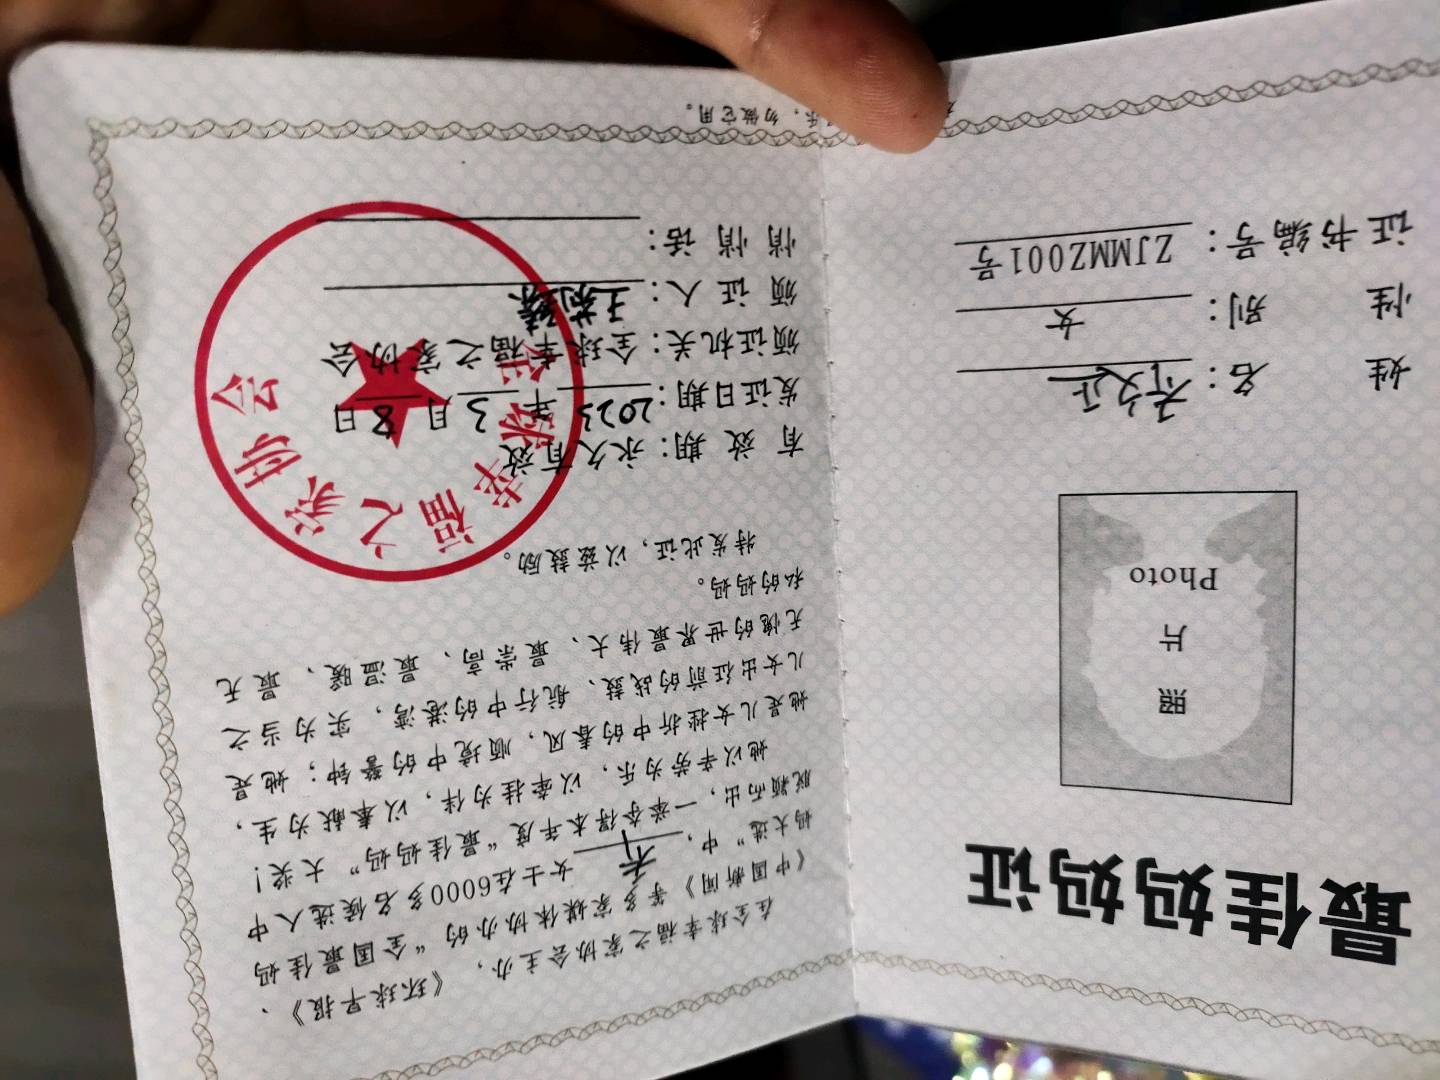 最佳妈妈证
照
片
Photo
姓 名：
性 别：女
证书编号：ZJMMZ001号
在全球幸福之家协会主办，《环球早报》、
《中国新闻》等多家媒体协办的“全国最佳妈
妈大选”中，齐 女士在6000多名候选人中
脱颖而出，一举夺得本年度“最佳妈妈”大奖！
她以辛劳为乐，以牵挂为伴，以奉献为生，
她是儿女挫折中的春风，顺境中的警钟；她是
儿女出征前的战鼓、航行中的港湾，实为当之
无愧的世界最伟大、最崇高、最温暖、最无
私的妈妈。
特发此证，以兹鼓励。
有 效 期：永久有效
发证日期：2023年3月8日
颁证机关：全球幸福之家协会
颁 证 人：
悄 悄 话：
全球幸福之家协会
乐，勿做它用。